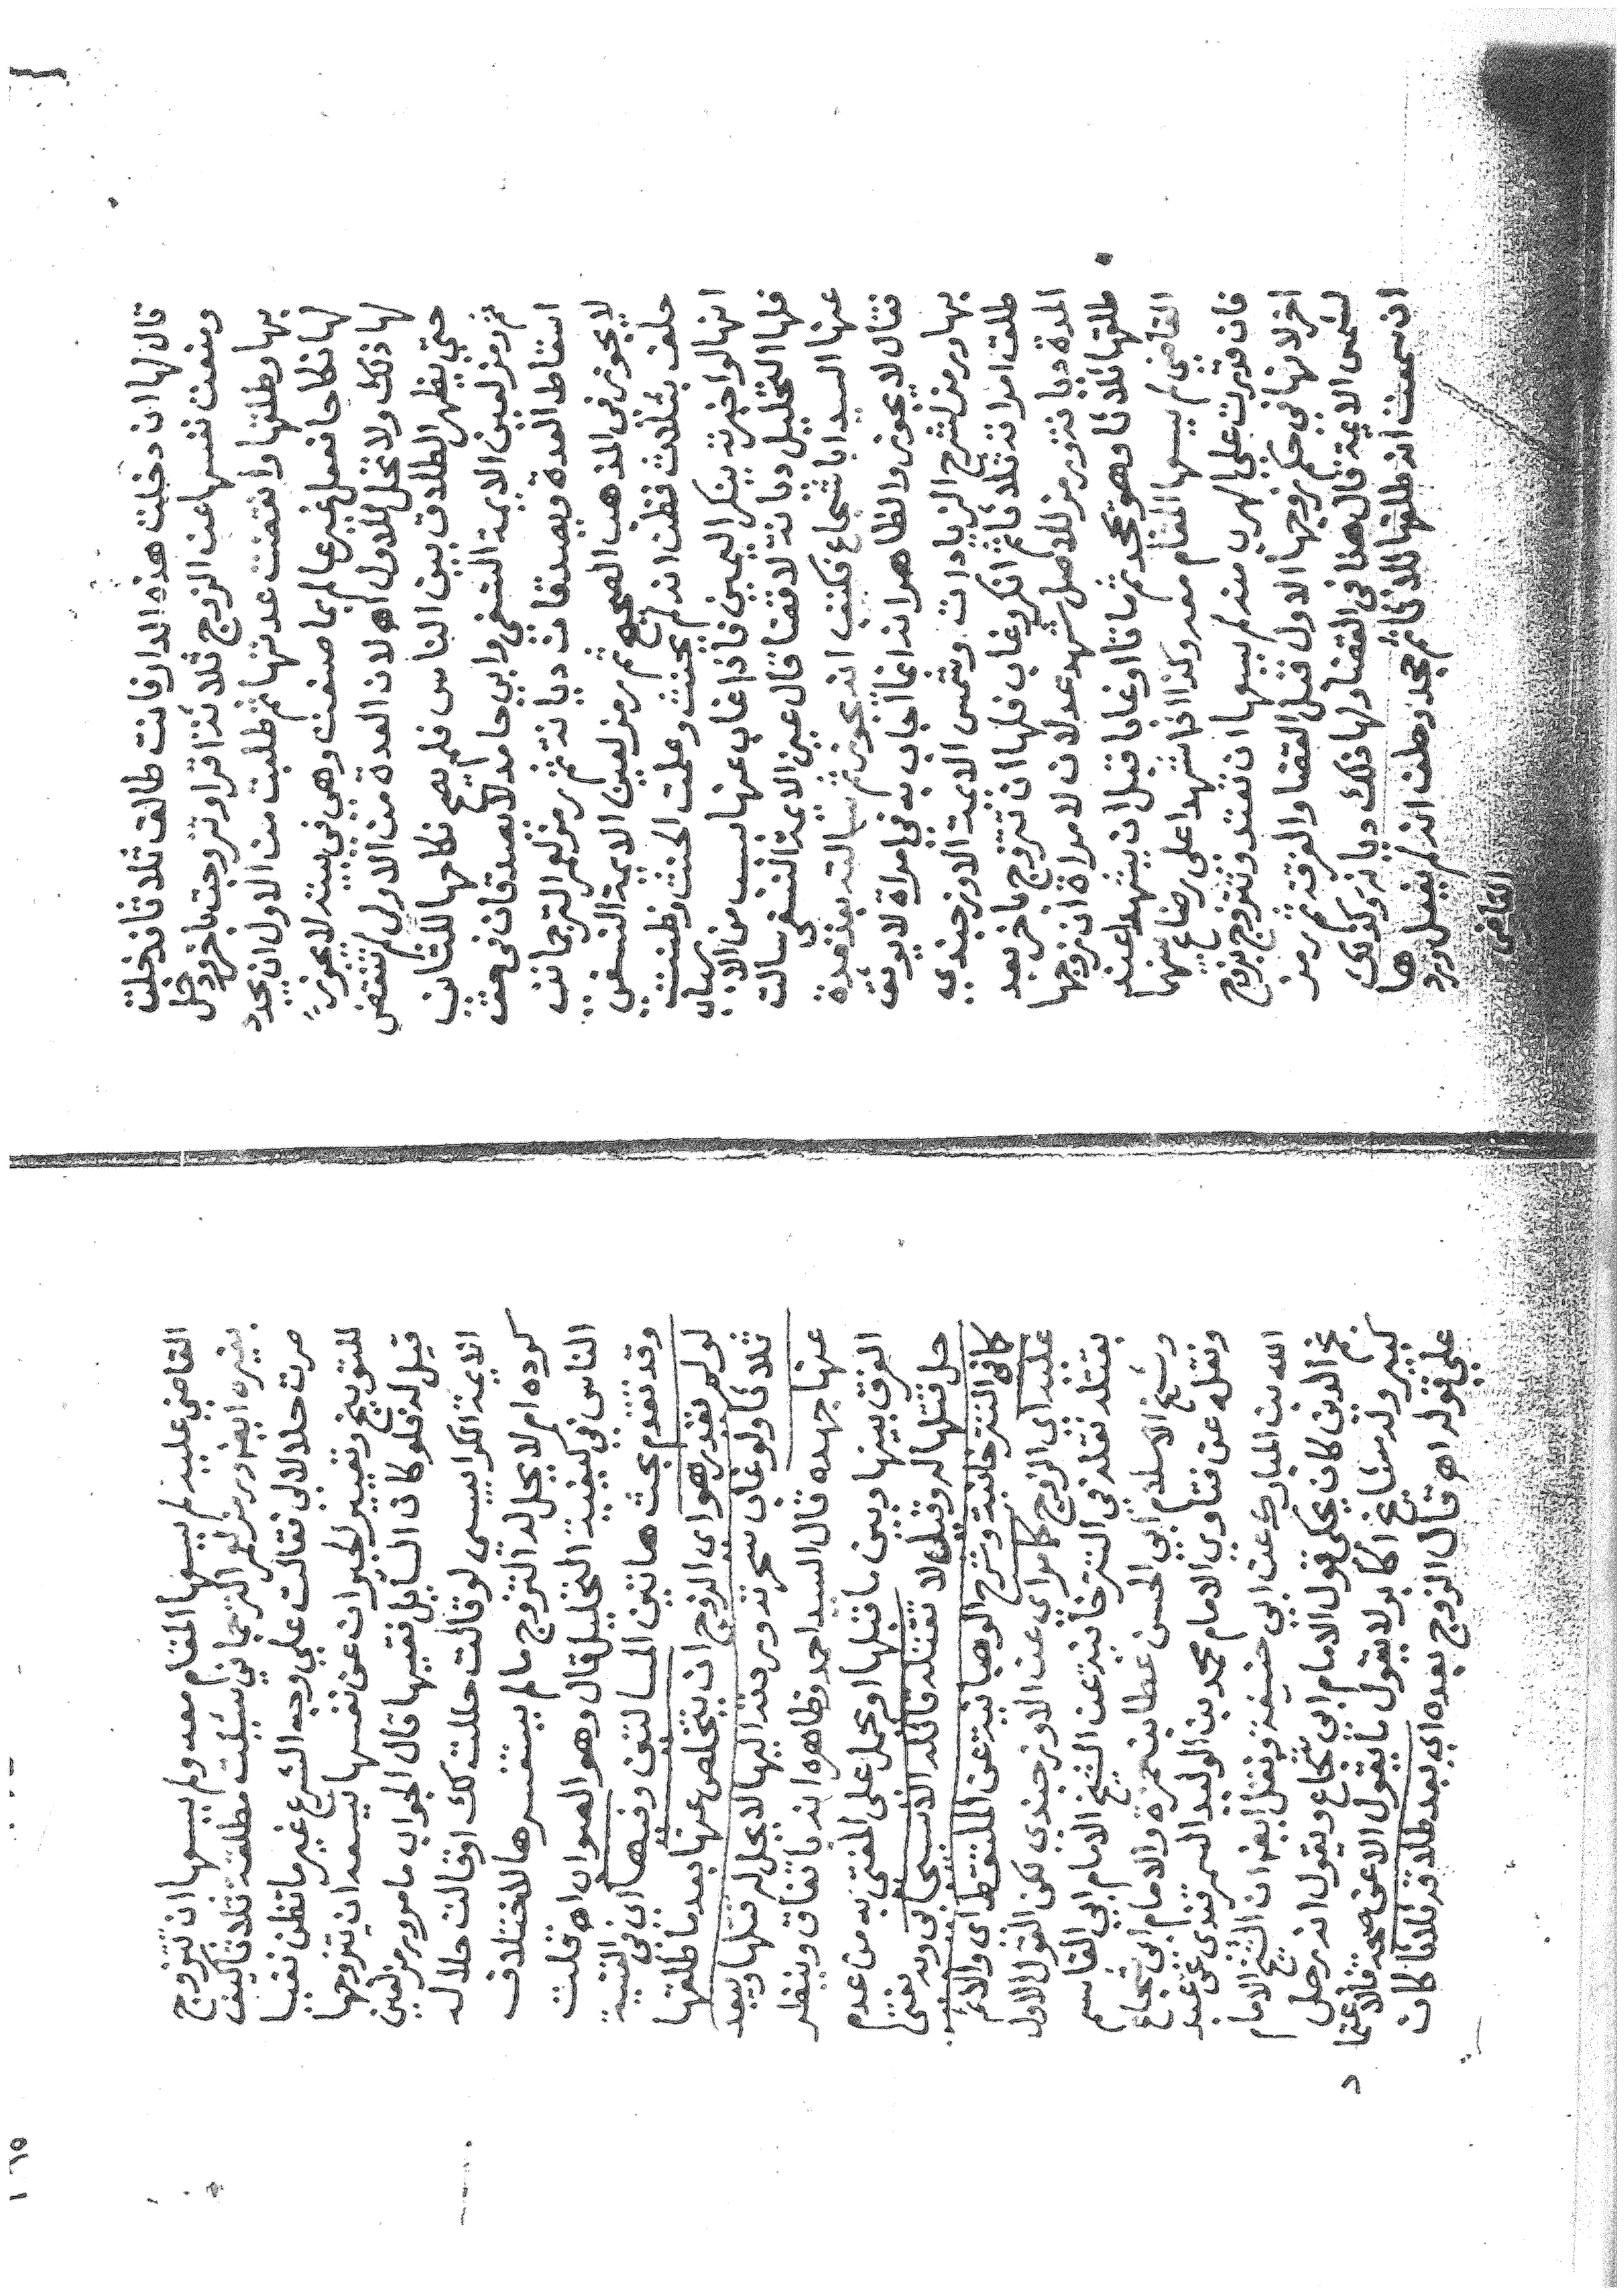 قال لها ان دخلت هذه الدار فانت طالق ثلاثا فدخلت
ومنعت نفسها عن الزوج ثلاثة اقرا وتزوجت باخر ودخل
بها وطلقها وانقضت عدتها ثم طلبت من الاول ان يجدد
لها نكاحا فعقل غير عالم بما صنعت وهي في بيته لا يجوز
لها ذلك ولا تحل للاول اهـ لان العدة من الاول لم تنقض
حتي يظهر الطلاق بين الناس فلم يصح نكاحها للثاني
ثم رمز لعين الايمة النسفي وابي حامد لا يصدقان في حق
اسقاط العدة ويصدقان ديانة ثم رمز لعمر الترجماني
لا يجوز في المذهب الصحيح ثم رمز لعين الايمة النسفي
حلف بثلاث فظن انه لم يحنث وعلمت الحنث وظنت
انها لو اخبرته ينكر اليمين فاذا غاب عنها بسبب من الاسباب
فلها التحليل ديانة لا قضا قال عين الايمة النسفي سالت
عنها السيد ابا شجاع فكتب انه يجوز ثم سالته بعد مدة
فقال لا يجوز والظاهر انه انما اجاب به في امراة لا يوثق
بها ورمز لشرح الزيادات وشمس الايمة الاوزجندي
طلق امراته ثلاثا ثم انكر وغاب فلها ان تتزوج باخر بعد
العدة ديانة ورمز للاصل شهد عدلان لامراة ان زوجها
طلقها ثلاثا وهو يجحد ثم ماتا او غابا قبل ان يشهدا عند
القاضي لم يسعها المقام معه وكذا اذا شهدا على رضاع بينهما
فان قدرت على الهرب منه لم يسعها ان تعتد وتتزوج بزوج
اخر لانها في حكم زوجها الاول قبل القضا والفرقة ثم رمز
لشمس الايمة قال هذا في القضا ولها ذلك ديانة وكذلك
ان سمعت انه طلقها ثلاثا ثم جحد وحلف انه لم يفعل وردها
القاضي
القاضي عليه لم يسعها المقام معه ولم يسعها ان تتزوج
بغيره ايضا ورمز لعمر الترجماني سئلت مطلقة ثلاثا كيف
صرت حلالا لي فقالت علي وجه الشرع غير ما تظن تفننا
للتوبيخ وتعيير الجيران عن نفسها يسعه ان يتزوجها
قيل له فلو كان السايل فقيها قال الجواب ما مر ورمز لعين
الايمة الكرابيسي لو قالت حللت لك او قالت حلاله
كرده ام لا يحل له التزوج ما لم يستفسرها لاختلاف
الناس في كيفية التحليل قال وهو الصواب اهـ قلت
وقد تقدم بحث هاتين المسالتين وفيها اي في القنية
لو لم يقدر هو اي الزوج ان يتخلص عنها بعد ما طلقها
ثلاثا ولو غاب سحرته وردته اليها لا يحل له قتلها ويبعد
عنها جهده قال السيد احمد وظاهره انه باتفاق وينظر
الفرق بينها وبين ما قبلها او يحمل على المفتي به من عدم
حل قتلها له وقيل لا تقتله قائله الاسبيجابي وبه يفتى
كما في التترخانية وشرح الوهبانية عن الملتقط اي والاثم
عليه اي الزوج كما مر اي عن الاوزجندي لكن القول الاول
بقتله نقله في التترخانية عن الشيخ الامام ابي القاسم
وشيخ الاسلام ابي الحسن عطا بن حمزة والامام ابي شجاع
ونقله عن فتاوي الامام محمد بن الوليد السمرقندي عن عبد
الله بن المبارك عن ابي حنيفة ونقل ايضا ان الشيخ الامام
نجم الدين كان يحكي قول الامام ابي شجاع ويقول انه رجل
كبير وله مشايخ اكابر لا يقول ما يقول الا عن صحة فالاعتماد
على قوله اهـ قال الزوج بعده اي بعد طلاقه ثلاثا كان
١٦٥